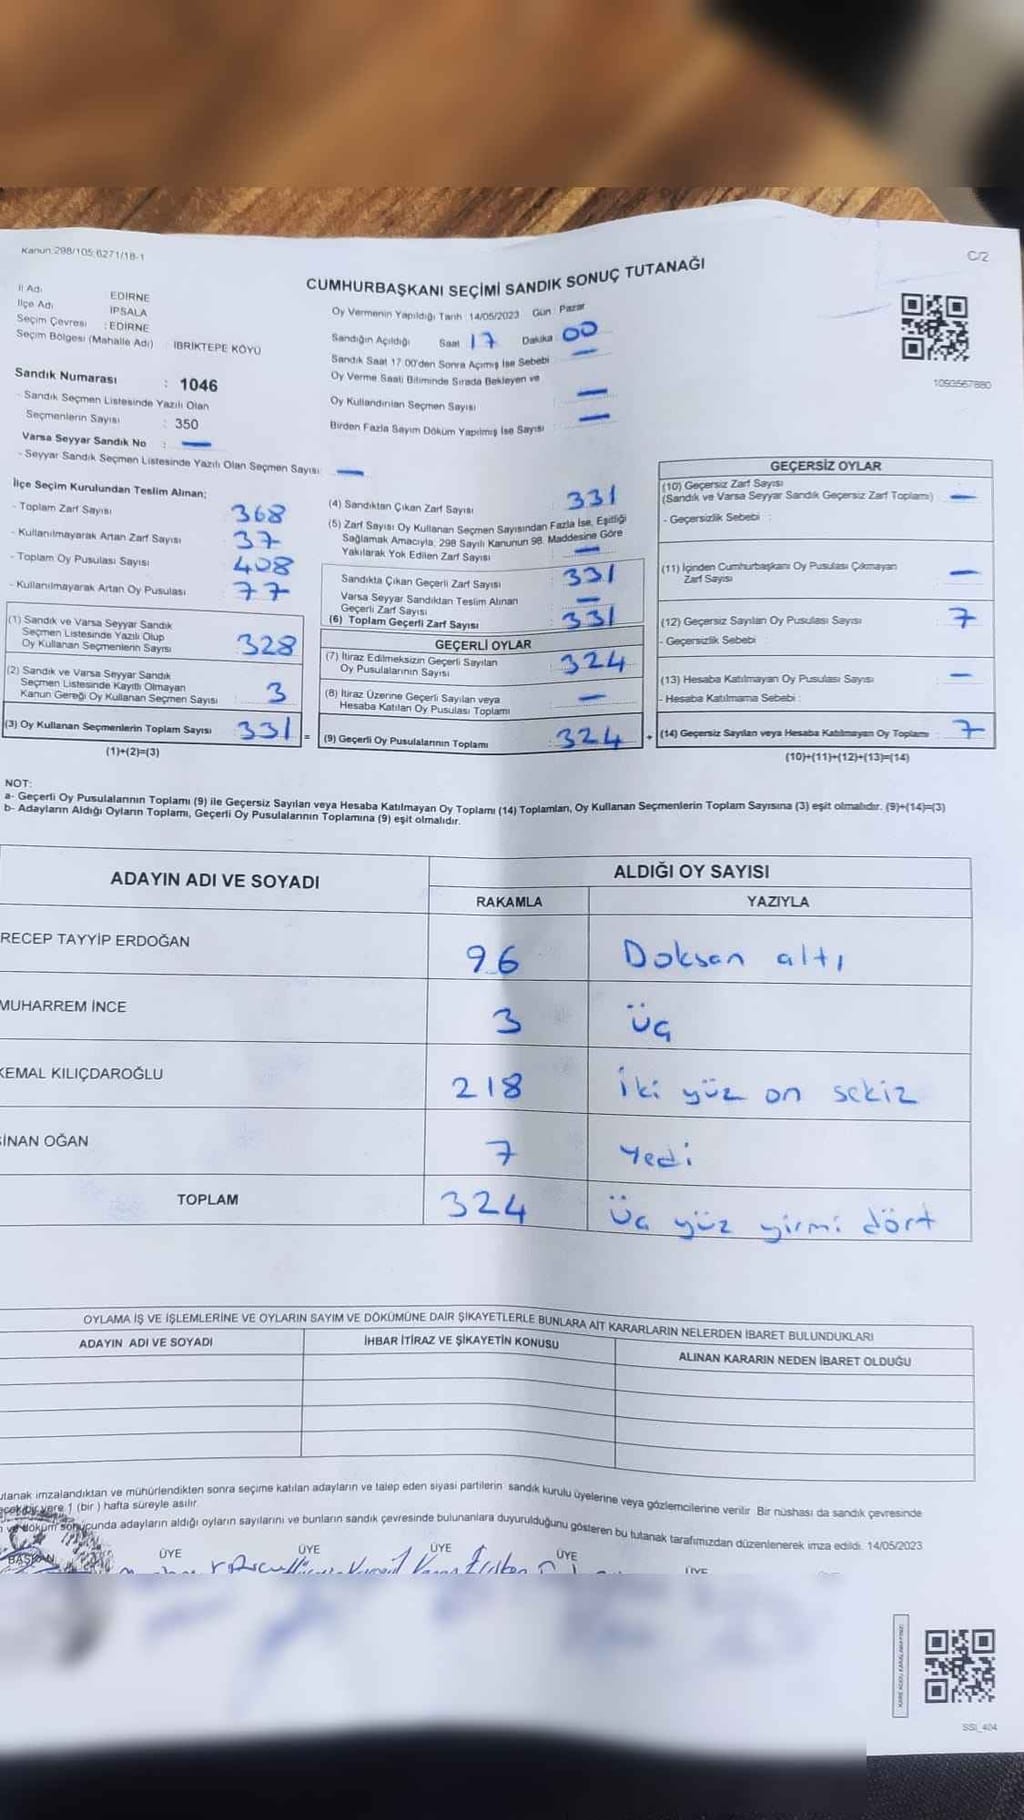 Kanun:298/105;6271/18-1
C/2
CUMHURBAŞKANI SEÇİMİ SANDIK SONUÇ TUTANAĞI
İl Adı EDİRNE
İlçe Adı İPSALA
Seçim Çevresi : EDİRNE
Seçim Bölgesi (Mahalle Adı) : İBRİKTEPE KÖYÜ
Sandık Numarası : 1046
- Sandık Seçmen Listesinde Yazılı Olan
Seçmenlerin Sayısı : 350
Varsa Seyyar Sandık No : —
- Seyyar Sandık Seçmen Listesinde Yazılı Olan Seçmen Sayısı —
Oy Vermenin Yapıldığı Tarih : 14/05/2023 Gün : Pazar
Sandığın Açıldığı Saat 17 Dakika 00
Sandık Saat 17:00'den Sonra Açımış İse Sebebi —
Oy Verme Saati Bitiminde Sırada Bekleyen ve
Oy Kullandırılan Seçmen Sayısı —
Birden Fazla Sayım Döküm Yapılmış İse Sayısı —
1093567880
İlçe Seçim Kurulundan Teslim Alınan;
- Toplam Zarf Sayısı 368
- Kullanılmayarak Artan Zarf Sayısı 37
- Toplam Oy Pusulası Sayısı 408
- Kullanılmayarak Artan Oy Pusulası 77
(1) Sandık ve Varsa Seyyar Sandık
Seçmen Listesinde Yazılı Olup
Oy Kullanan Seçmenlerin Sayısı 328
(2) Sandık ve Varsa Seyyar Sandık
Seçmen Listesinde Kayıtlı Olmayan
Kanun Gereği Oy Kullanan Seçmen Sayısı 3
(3) Oy Kullanan Seçmenlerin Toplam Sayısı 331 =
(1)+(2)=(3)
(4) Sandıktan Çıkan Zarf Sayısı 331
(5) Zarf Sayısı Oy Kullanan Seçmen Sayısından Fazla İse, Eşitliği
Sağlamak Amacıyla, 298 Sayılı Kanunun 98. Maddesine Göre
Yakılarak Yok Edilen Zarf Sayısı —
Sandıkta Çıkan Geçerli Zarf Sayısı 331
Varsa Seyyar Sandıktan Teslim Alınan
Geçerli Zarf Sayısı —
(6) Toplam Geçerli Zarf Sayısı 331
GEÇERLİ OYLAR
(7) İtiraz Edilmeksizin Geçerli Sayılan
Oy Pusulalarının Sayısı 324
(8) İtiraz Üzerine Geçerli Sayılan veya
Hesaba Katılan Oy Pusulası Toplamı —
(9) Geçerli Oy Pusulalarının Toplamı 324 +
GEÇERSİZ OYLAR
(10) Geçersiz Zarf Sayısı
(Sandık ve Varsa Seyyar Sandık Geçersiz Zarf Toplamı) —
- Geçersizlik Sebebi :
(11) İçinden Cumhurbaşkanı Oy Pusulası Çıkmayan
Zarf Sayısı —
(12) Geçersiz Sayılan Oy Pusulası Sayısı 7
- Geçersizlik Sebebi
(13) Hesaba Katılmayan Oy Pusulası Sayısı —
- Hesaba Katılmama Sebebi :
(14) Geçersiz Sayılan veya Hesaba Katılmayan Oy Toplamı 7
(10)+(11)+(12)+(13)=(14)
NOT:
a- Geçerli Oy Pusulalarının Toplamı (9) ile Geçersiz Sayılan veya Hesaba Katılmayan Oy Toplamı (14) Toplamları, Oy Kullanan Seçmenlerin Toplam Sayısına (3) eşit olmalıdır. (9)+(14)=(3)
b- Adayların Aldığı Oyların Toplamı, Geçerli Oy Pusulalarının Toplamına (9) eşit olmalıdır.
ADAYIN ADI VE SOYADI ALDIĞI OY SAYISI
RAKAMLA YAZIYLA
RECEP TAYYİP ERDOĞAN 96 Doksan altı
MUHARREM İNCE 3 üç
KEMAL KILIÇDAROĞLU 218 iki yüz on sekiz
SİNAN OĞAN 7 yedi
TOPLAM 324 üç yüz yirmi dört
OYLAMA İŞ VE İŞLEMLERİNE VE OYLARIN SAYIM VE DÖKÜMÜNE DAİR ŞİKAYETLERLE BUNLARA AİT KARARLARIN NELERDEN İBARET BULUNDUKLARI
ADAYIN ADI VE SOYADI İHBAR İTİRAZ VE ŞİKAYETİN KONUSU ALINAN KARARIN NEDEN İBARET OLDUĞU
utanak imzalandıktan ve mühürlendikten sonra seçime katılan adayların ve talep eden siyasi partilerin sandık kurulu üyelerine veya gözlemcilerine verilir. Bir nüshası da sandık çevresinde
yere 1 (bir) hafta süreyle asılır.
ve döküm sonucunda adayların aldığı oyların sayılarını ve bunların sandık çevresinde bulunanlara duyurulduğunu gösteren bu tutanak tarafımızdan düzenlenerek imza edildi. 14/05/2023
BAŞKAN ÜYE ÜYE ÜYE ÜYE ÜYE
SSI_404